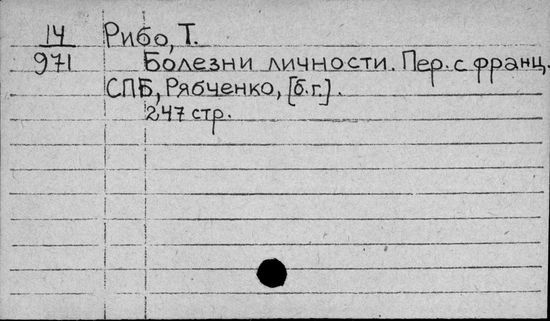 14 Рибо, Т.
971 Болезни личности. Пер. с франц.
СПБ, Рябченко, [б.г.].
247 стр.